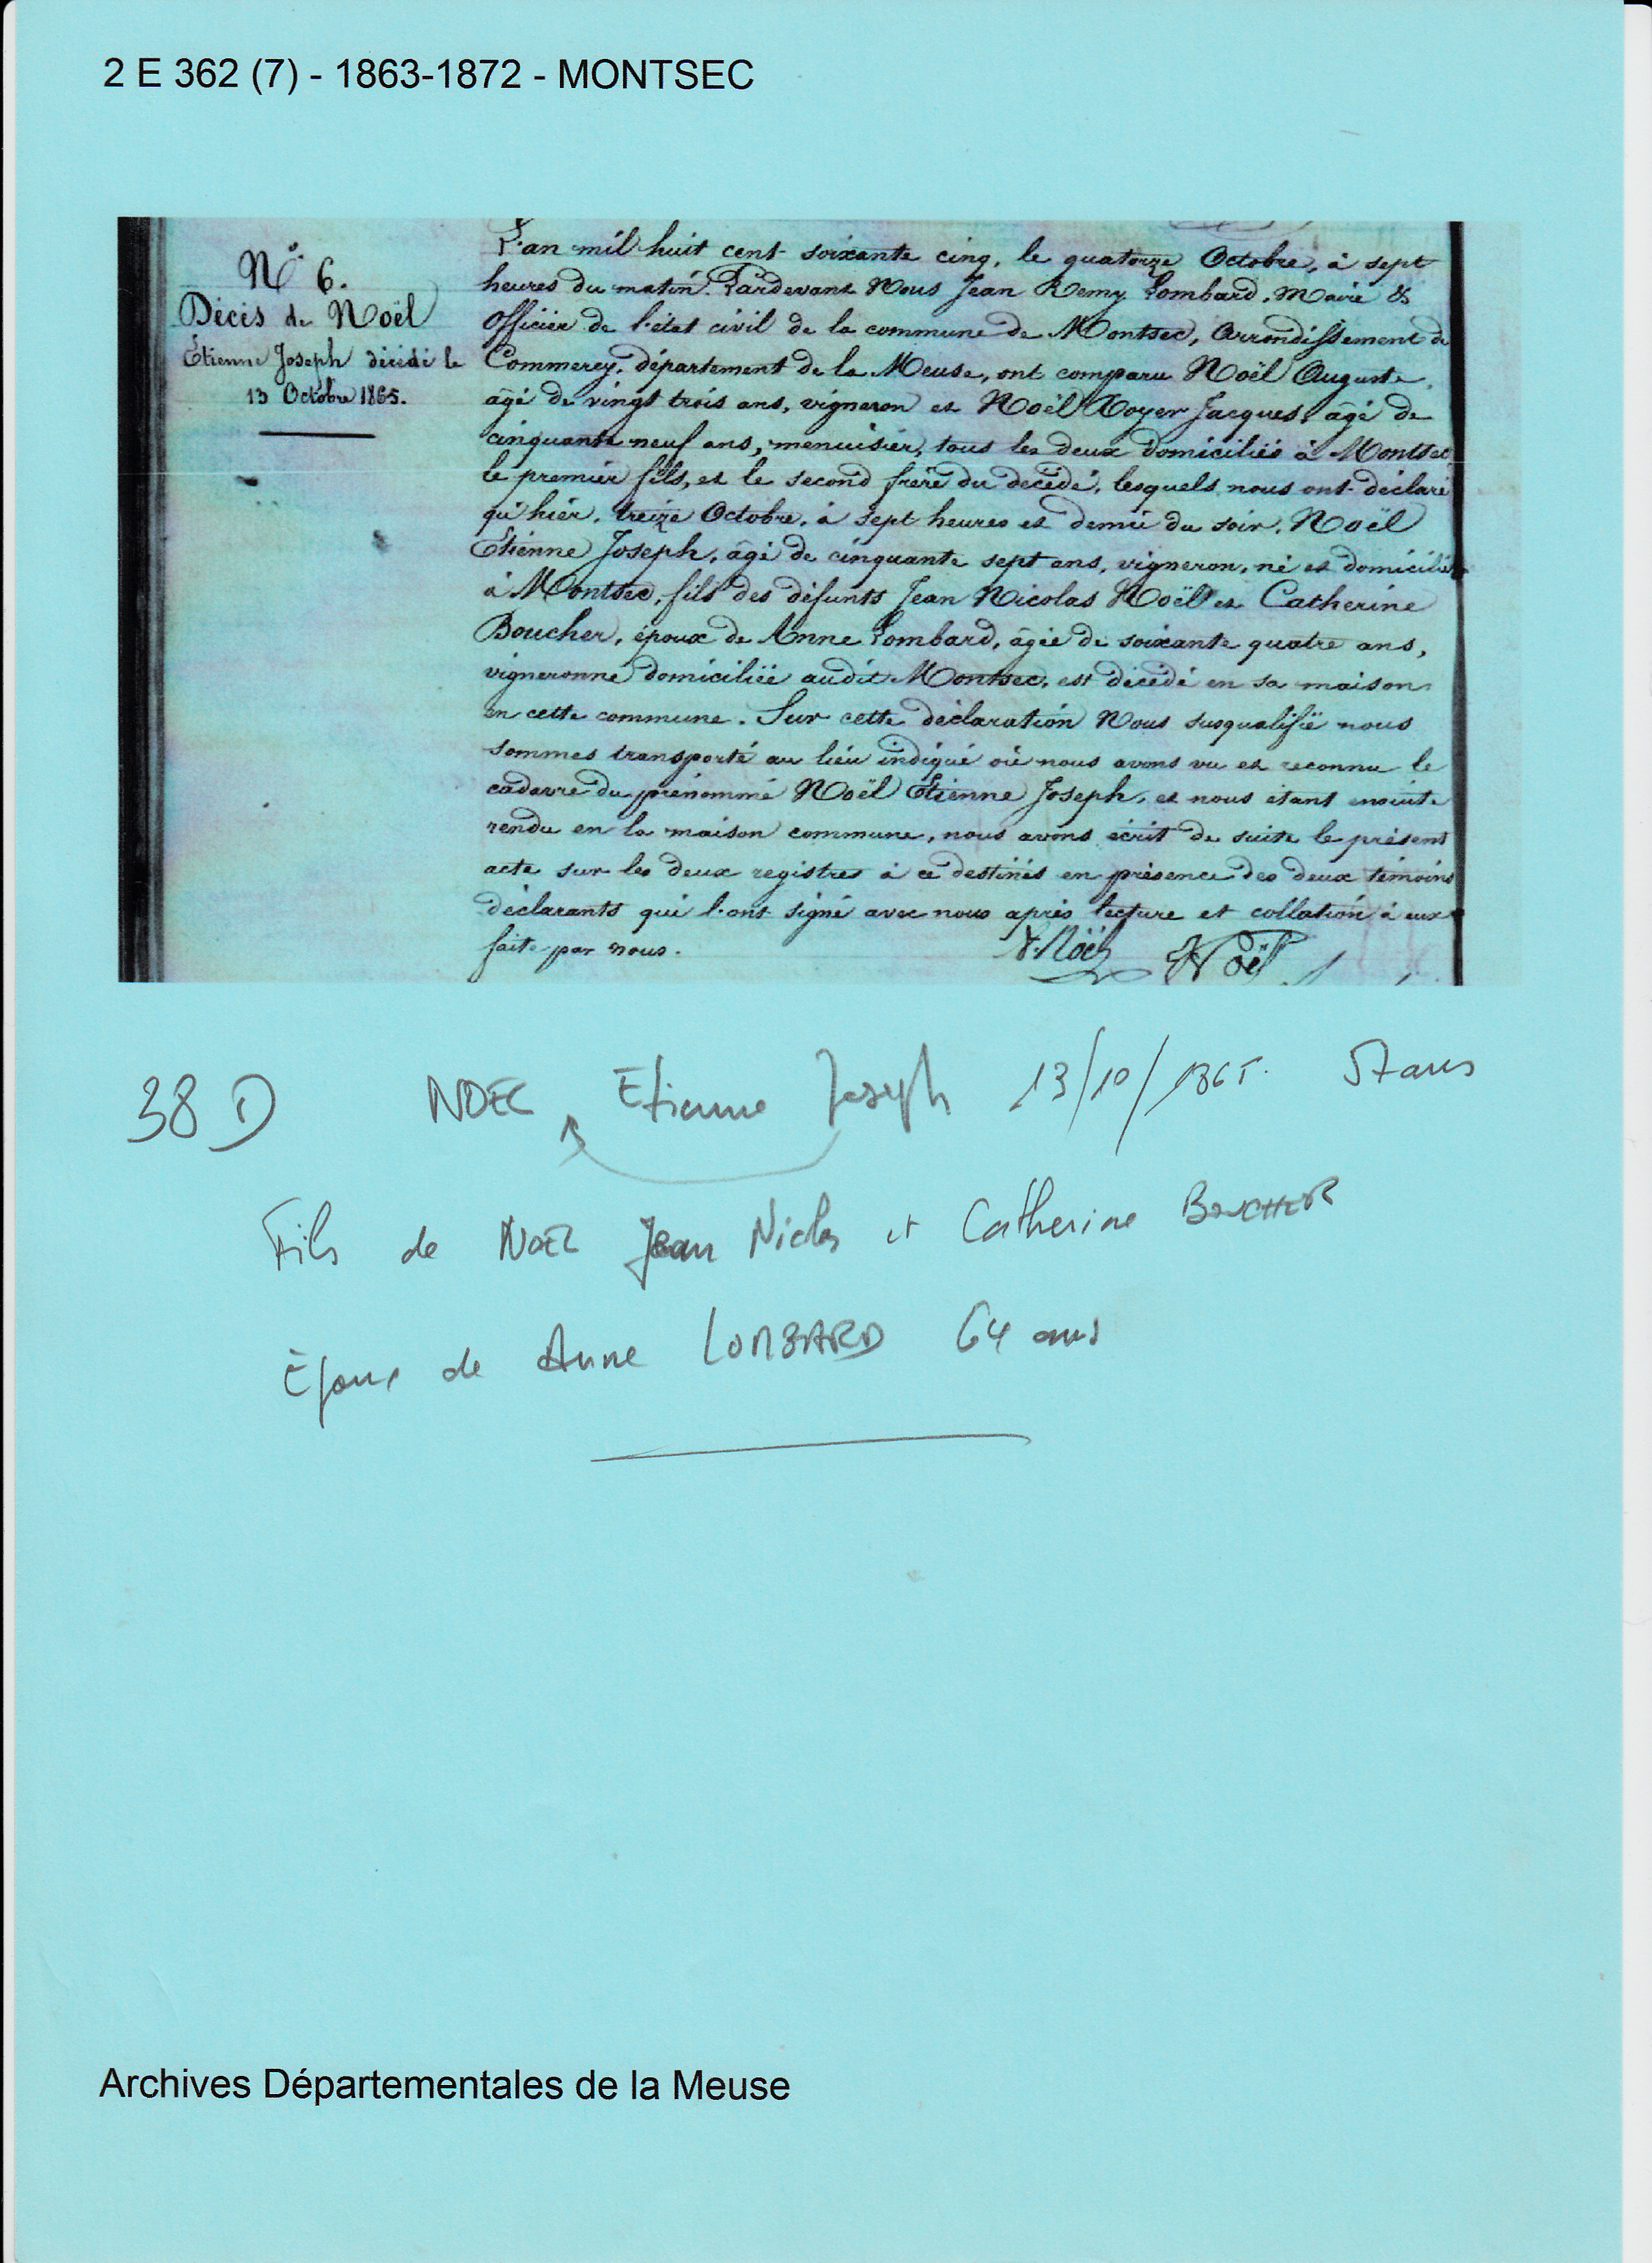 2 E 362 (7) - 1863-1872 - MONTSEC
N° 6.
Décès de Noël
Étienne Joseph décédé le
13 Octobre 1865.
L'an mil huit cent soixante cinq, le quatorze Octobre, à sept
heures du matin. Pardevant Nous Jean Remy Lombard, Maire &
Officier de l'état civil de la commune de Montsec, Arrondissement de
Commercy, département de la Meuse, ont comparu Noël Auguste,
âgé de vingt trois ans, vigneron et Noël Royer Jacques, âgé de
cinquante neuf ans, menuisier, tous les deux domiciliés à Montsec
le premier fils, et le second frère du décédé, lesquels nous ont déclaré
qu'hier, treize Octobre, à sept heures et demie du soir, Noël
Étienne Joseph, âgé de cinquante sept ans, vigneron, né et domicilié
à Montsec, fils des défunts Jean Nicolas Noël et Catherine
Boucher, époux de Anne Lombard, âgée de soixante quatre ans,
vigneronne domiciliée audit Montsec, est décédé en sa maison
en cette commune. Sur cette déclaration Nous susqualifié nous
sommes transporté au lieu indiqué où nous avons vu et reconnu le
cadavre du prénommé Noël Étienne Joseph, et nous étant ensuite
rendu en la maison commune, nous avons écrit de suite le présent
acte sur les deux registres à ce destinés en présence des deux témoins
déclarants qui l'ont signé avec nous après lecture et collation à eux
faite par nous.
Noël Noël
38 D NOEL Etienne Joseph 13/10/1865. 57 ans
Fils de NOEL Jean Nicolas et Catherine BOUCHER
Époux de Anne LOMBARD 64 ans
Archives Départementales de la Meuse